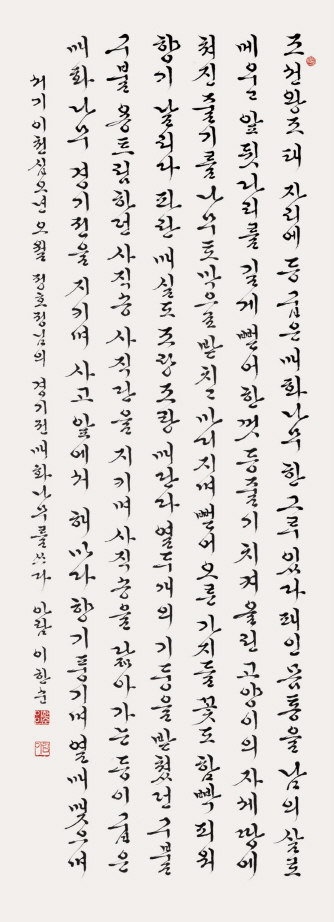 조선왕조 태 자리에 등 굽은 매화나무 한 그루 있다 패인 몸통을 남의 살로
메우고 앞 뒷다리를 길게 뻗어 한껏 등줄기 치켜 올린 고양이의 자세 땅에
쳐진 줄기를 나무토막으로 받치고 까리지며 뻗어 오른 가지들 꽃도 함빡 피워
향기 날리다 파란 매실도 조랑조랑 매란다 열두개의 기둥을 받쳤던 구불
구불 용트림하던 사직송 사직단을 지키며 사직송을 닮아가는 등이 굽은
매화나무 경기전을 지키며 사고 앞에서 해마다 향기 풍기며 열매 맺으며
서기 이천십오년 오월 정호정님의 경기전 매화나무를 쓰다 아람 이한순